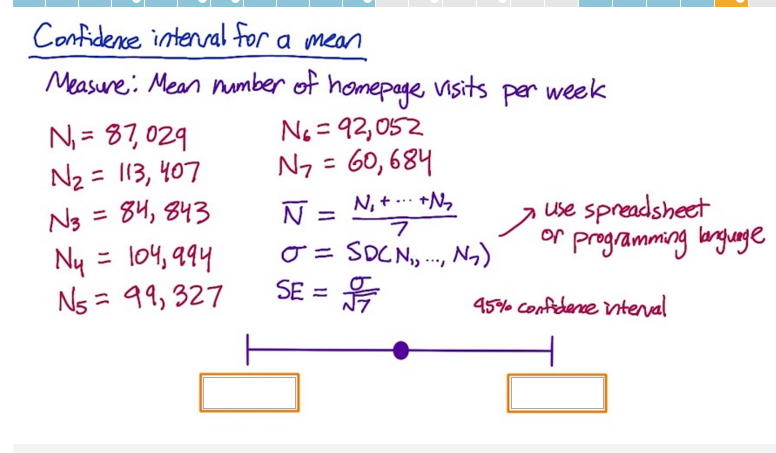 Confidence interval for a mean
Measure: Mean number of homepage visits per week
N₁ = 87,029
N₂ = 113,407
N₃ = 84,843
N₄ = 104,994
N₅ = 99,327
N₆ = 92,052
N₇ = 60,684
N̅ = (N₁ + ... + N₇) / 7
σ = SD(N₁, ..., N₇)
SE = σ / √7
→ use spreadsheet
or programming language
95% confidence interval